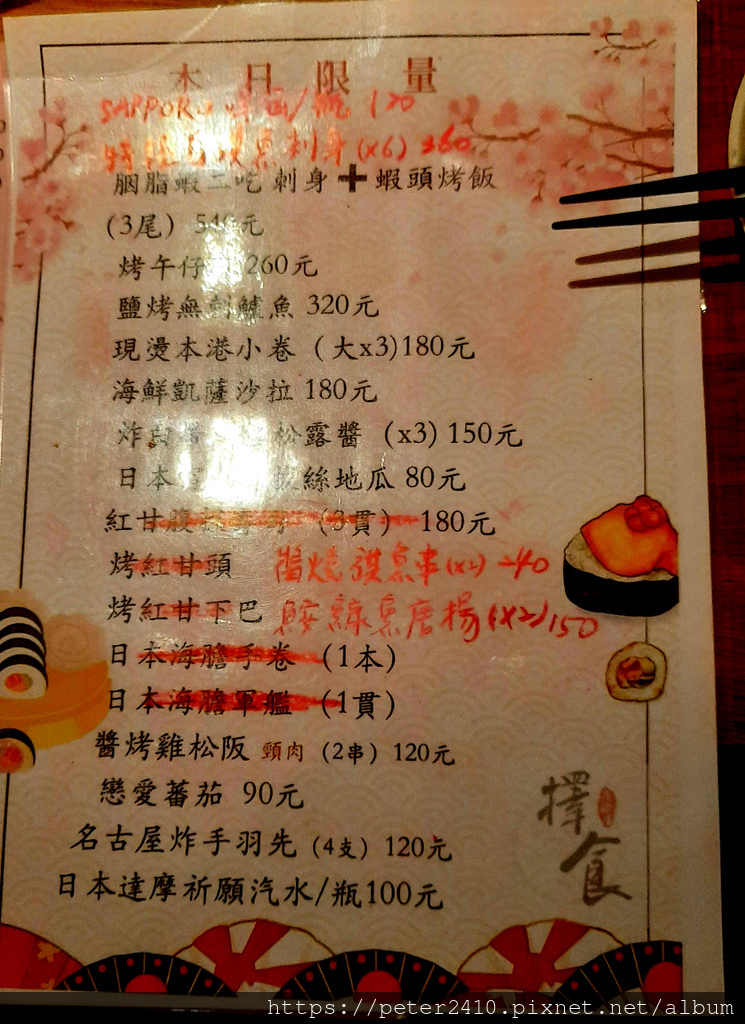 本日限量
SAPPORO 120
刺身(x6) 360
胭脂蝦二吃 刺身＋蝦頭烤飯
(3尾) 540元
烤午仔 260元
鹽烤無刺鱸魚 320元
現燙本港小卷 (大x3)180元
海鮮凱薩沙拉 180元
炸 松露醬 (x3) 150元
日本 拔絲地瓜 80元
紅甘腹 (3貫) 180元
烤紅甘頭 醬燒 串(x2) 240
烤紅甘下巴 唐揚(x2)150
日本海膽手卷 (1本)
日本海膽軍艦 (1貫)
醬烤雞松阪 頸肉 (2串) 120元
戀愛蕃茄 90元
名古屋炸手羽先 (4支) 120元
日本達摩祈願汽水/瓶100元
擇食
https://peter2410.pixnet.net/album